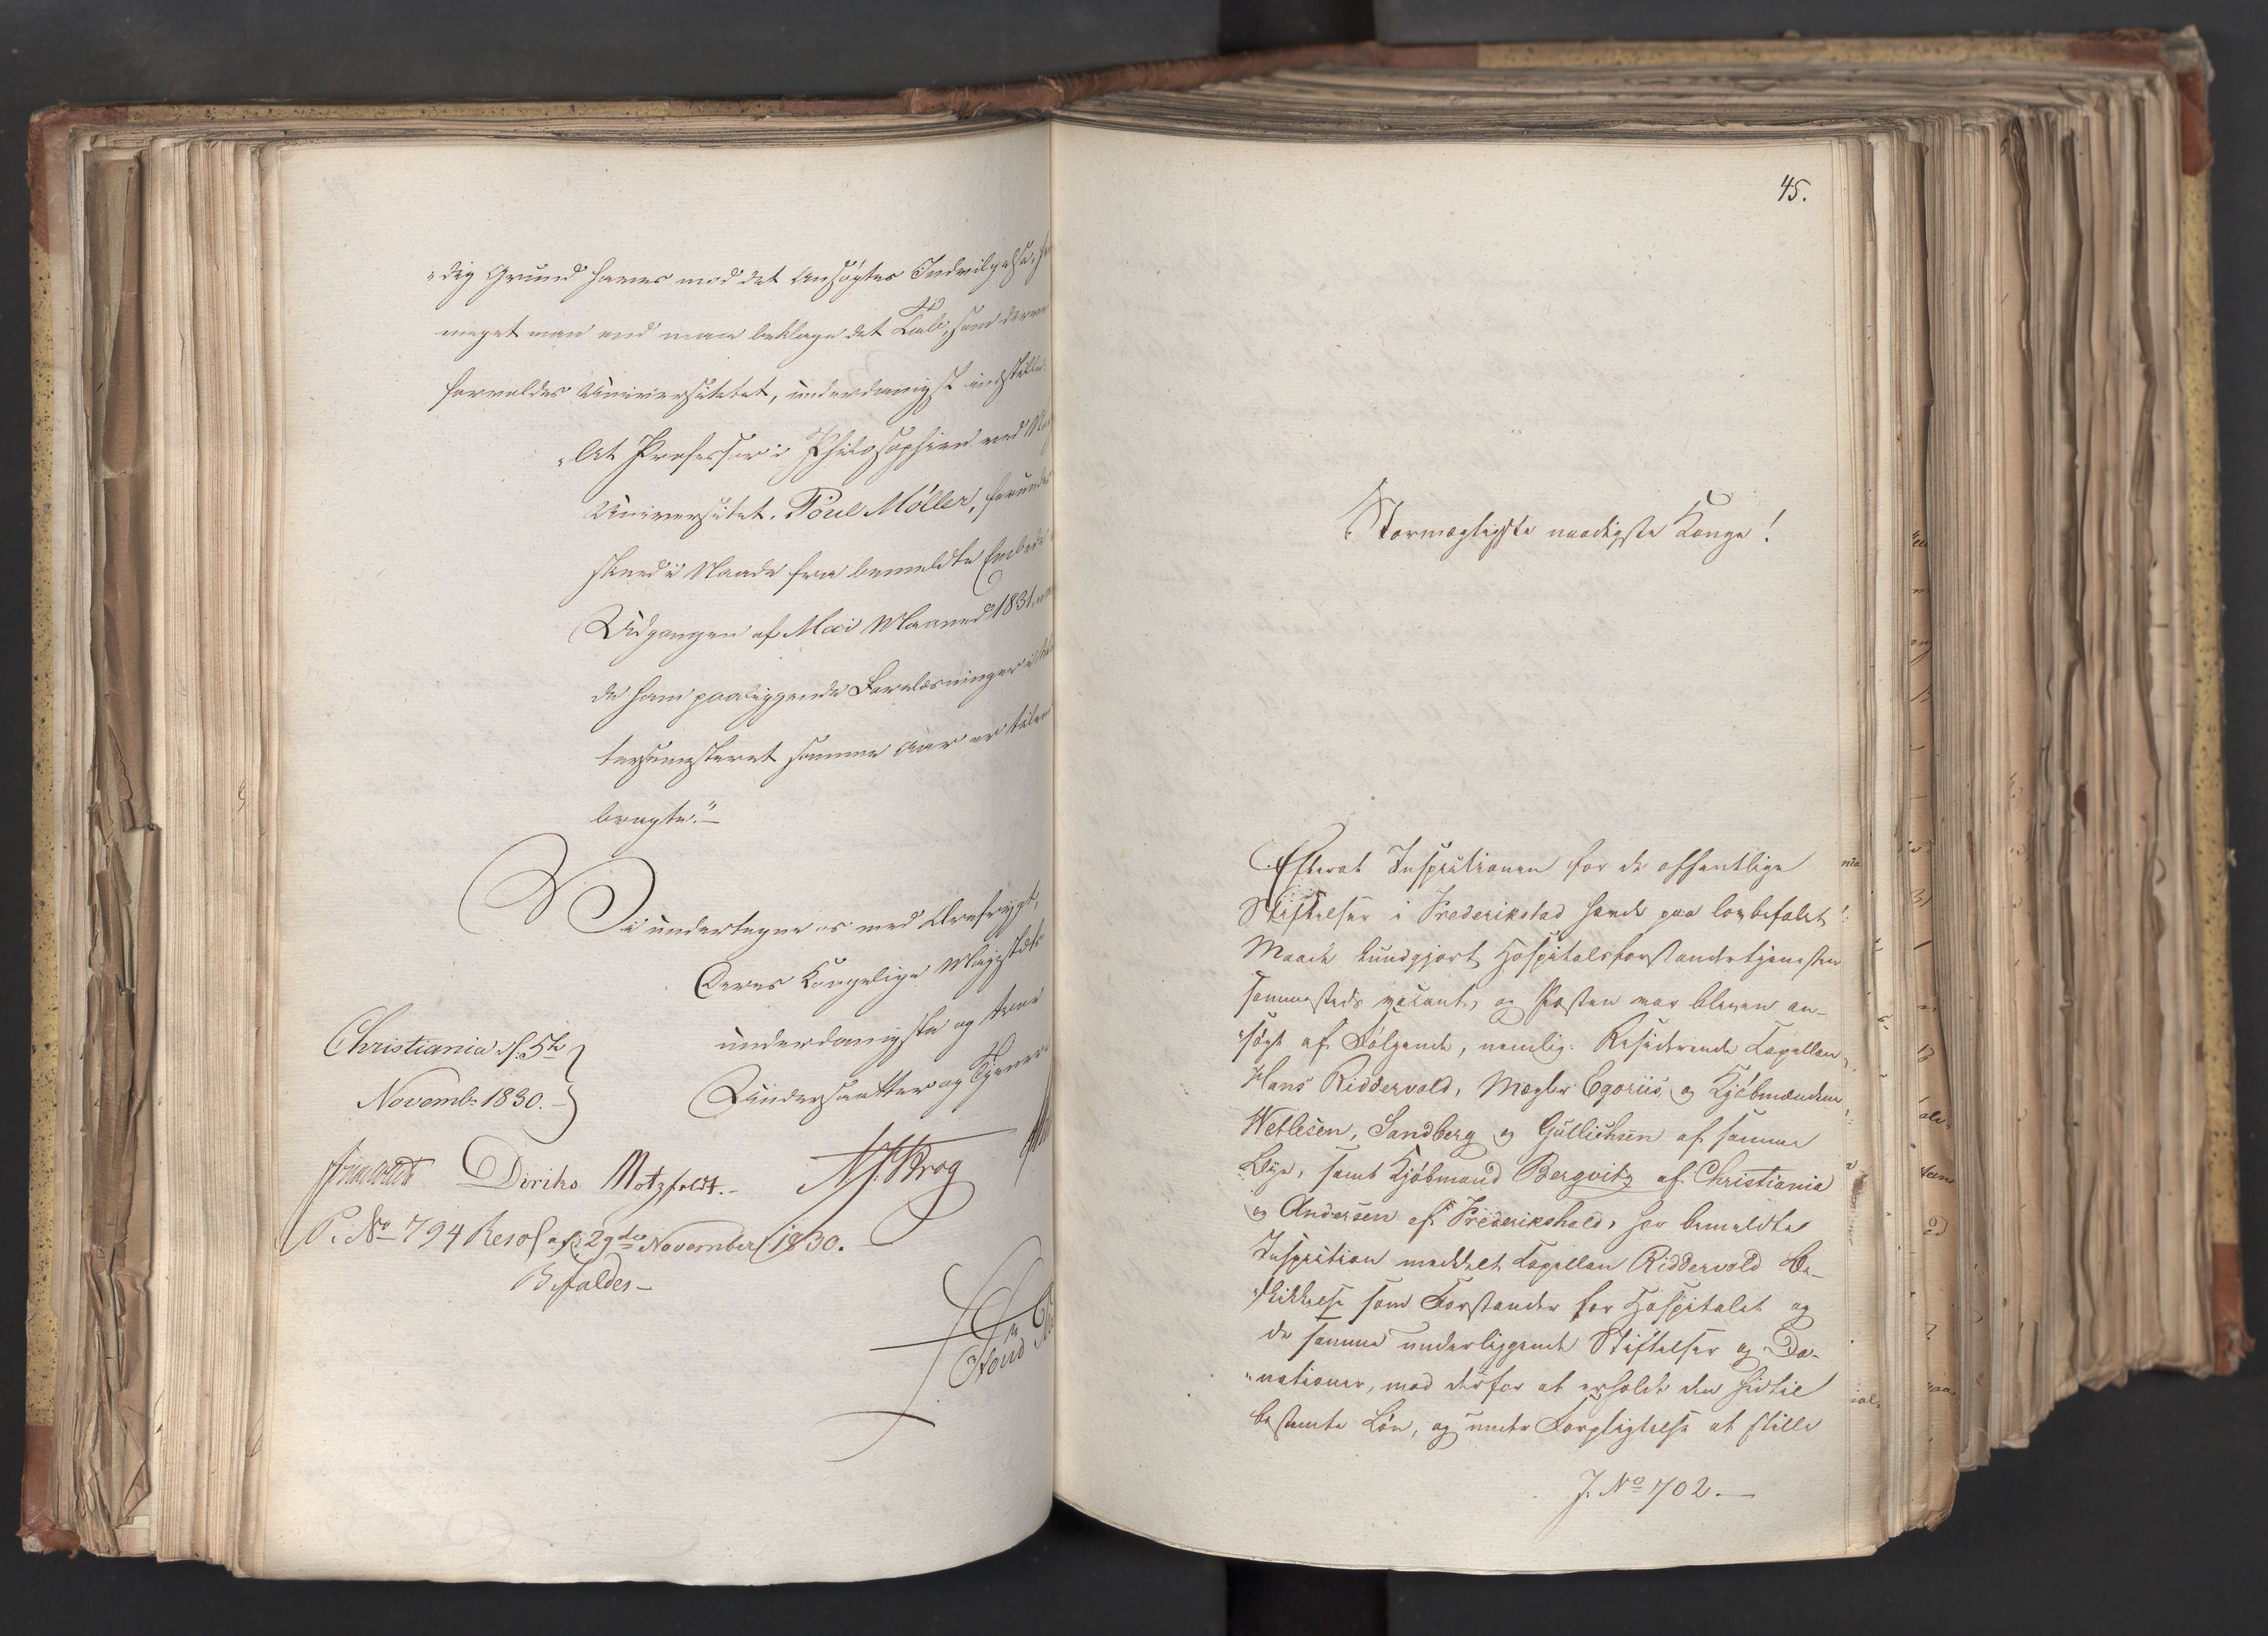 "dig Grund haves mod det Ansøgtes Indvilgelse, hvor
meget man end maa beklage det Tab, som derved
forvoldes Universitetet, underdanigst indstille:
"At Professor i Philosophien ved
Universitetet, Poul Möller, forundes
Afsked i Naade fra bemeldte Embede
Udgangen af Mai Maaned 1831,
de ham paaliggende Forelæsninger i
semesteret samme Aar er tilende
bragte."—
Vi undertegne os med Ærefrygt,
Deres Kongelige Majestæts
underdanigste og troe
Undersaatter og Tjenere
Christiania d. 5te
Novemb. 1830.—
Diriks Motzfeldt.— Krog
P. No 794 Resol. af 29de November 1830.
Bifaldes—
45.
Stormægtigste naadigste Konge!
Efterat Inspectionen for de offentlige
Stiftelser i Frederikstad havde paa lovbefalet
Maade kundgjort Hospitalsforstandertjenesten
sammesteds vacant, og Posten var bleven an-
"søgt af Følgende, nemlig: Residerende Capellan
Hans Riddervold, Mægler Egoriis, og Kjøbmændene
Wetlesen, Sandberg og Gullichsen af samme
Bye, samt Kjøbmand Bergvitz af Christiania
og Andersen af Frederikshald, har bemeldte
Inspection meddelt Capellan Riddervold Be-
"skikkelse som Forstander for Hospitalet og
de samme underliggende Stiftelser og Do-
"nationer, mod derfor at erholde den hidtil
bestemte Løn, og under Forpligtelse at stille
J. No 702.—